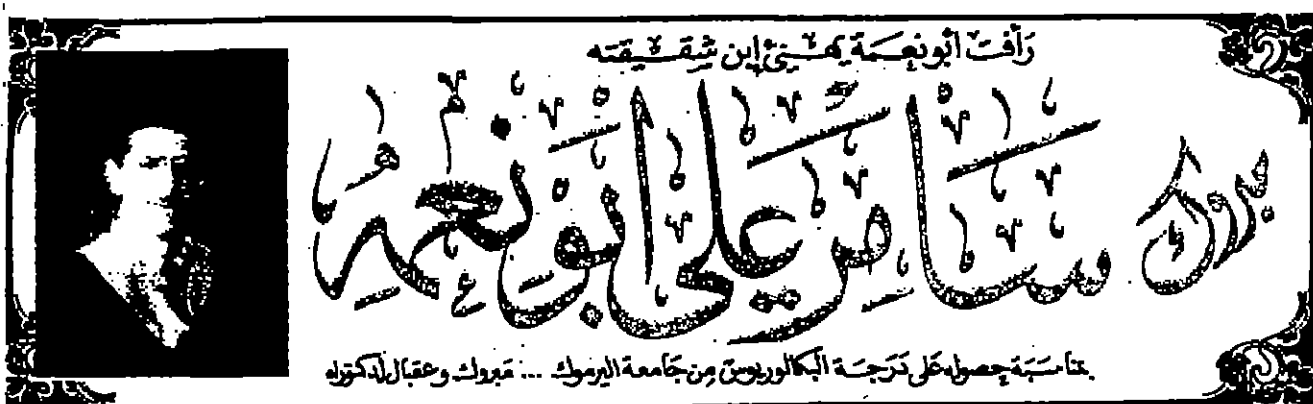 رأفت أبو نعمة يهنئ إبن شقيقته
مبروك سامر علي ابو نعمه
بمناسبة حصوله على درجة البكالوريوس من جامعة اليرموك ... مبروك وعقبال لدكتوراه